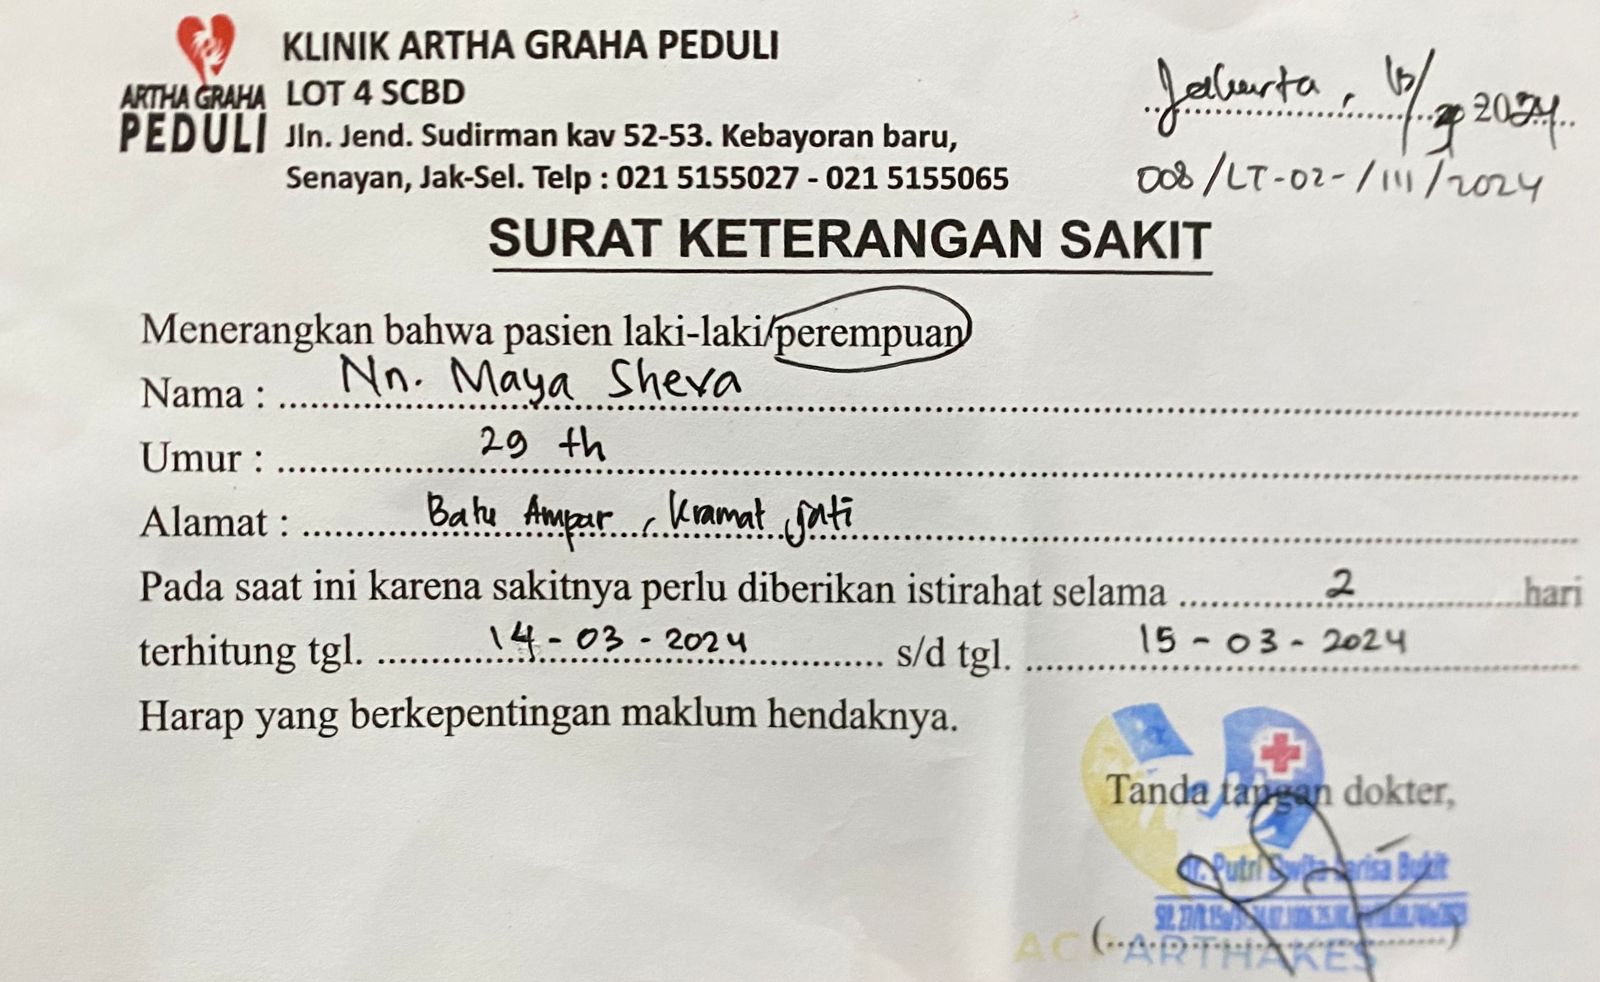 KLINIK ARTHA GRAHA PEDULI
ARTHA GRAHA
PEDULI
LOT 4 SCBD
Jln. Jend. Sudirman kav 52-53. Kebayoran baru,
Senayan, Jak-Sel. Telp : 021 5155027 - 021 5155065
Jakarta, 2024
008/LT-02-/III/2024
SURAT KETERANGAN SAKIT
Menerangkan bahwa pasien laki-laki/perempuan
Nama : Nn. Maya Sheva
Umur : 29 th
Alamat : Batu Ampar, Kramat Jati
Pada saat ini karena sakitnya perlu diberikan istirahat selama 2 hari
terhitung tgl. 14-03-2024 s/d tgl. 15-03-2024
Harap yang berkepentingan maklum hendaknya.
Tanda tangan dokter,
dr. Putri Bukit
(....................)
ARTHAKES